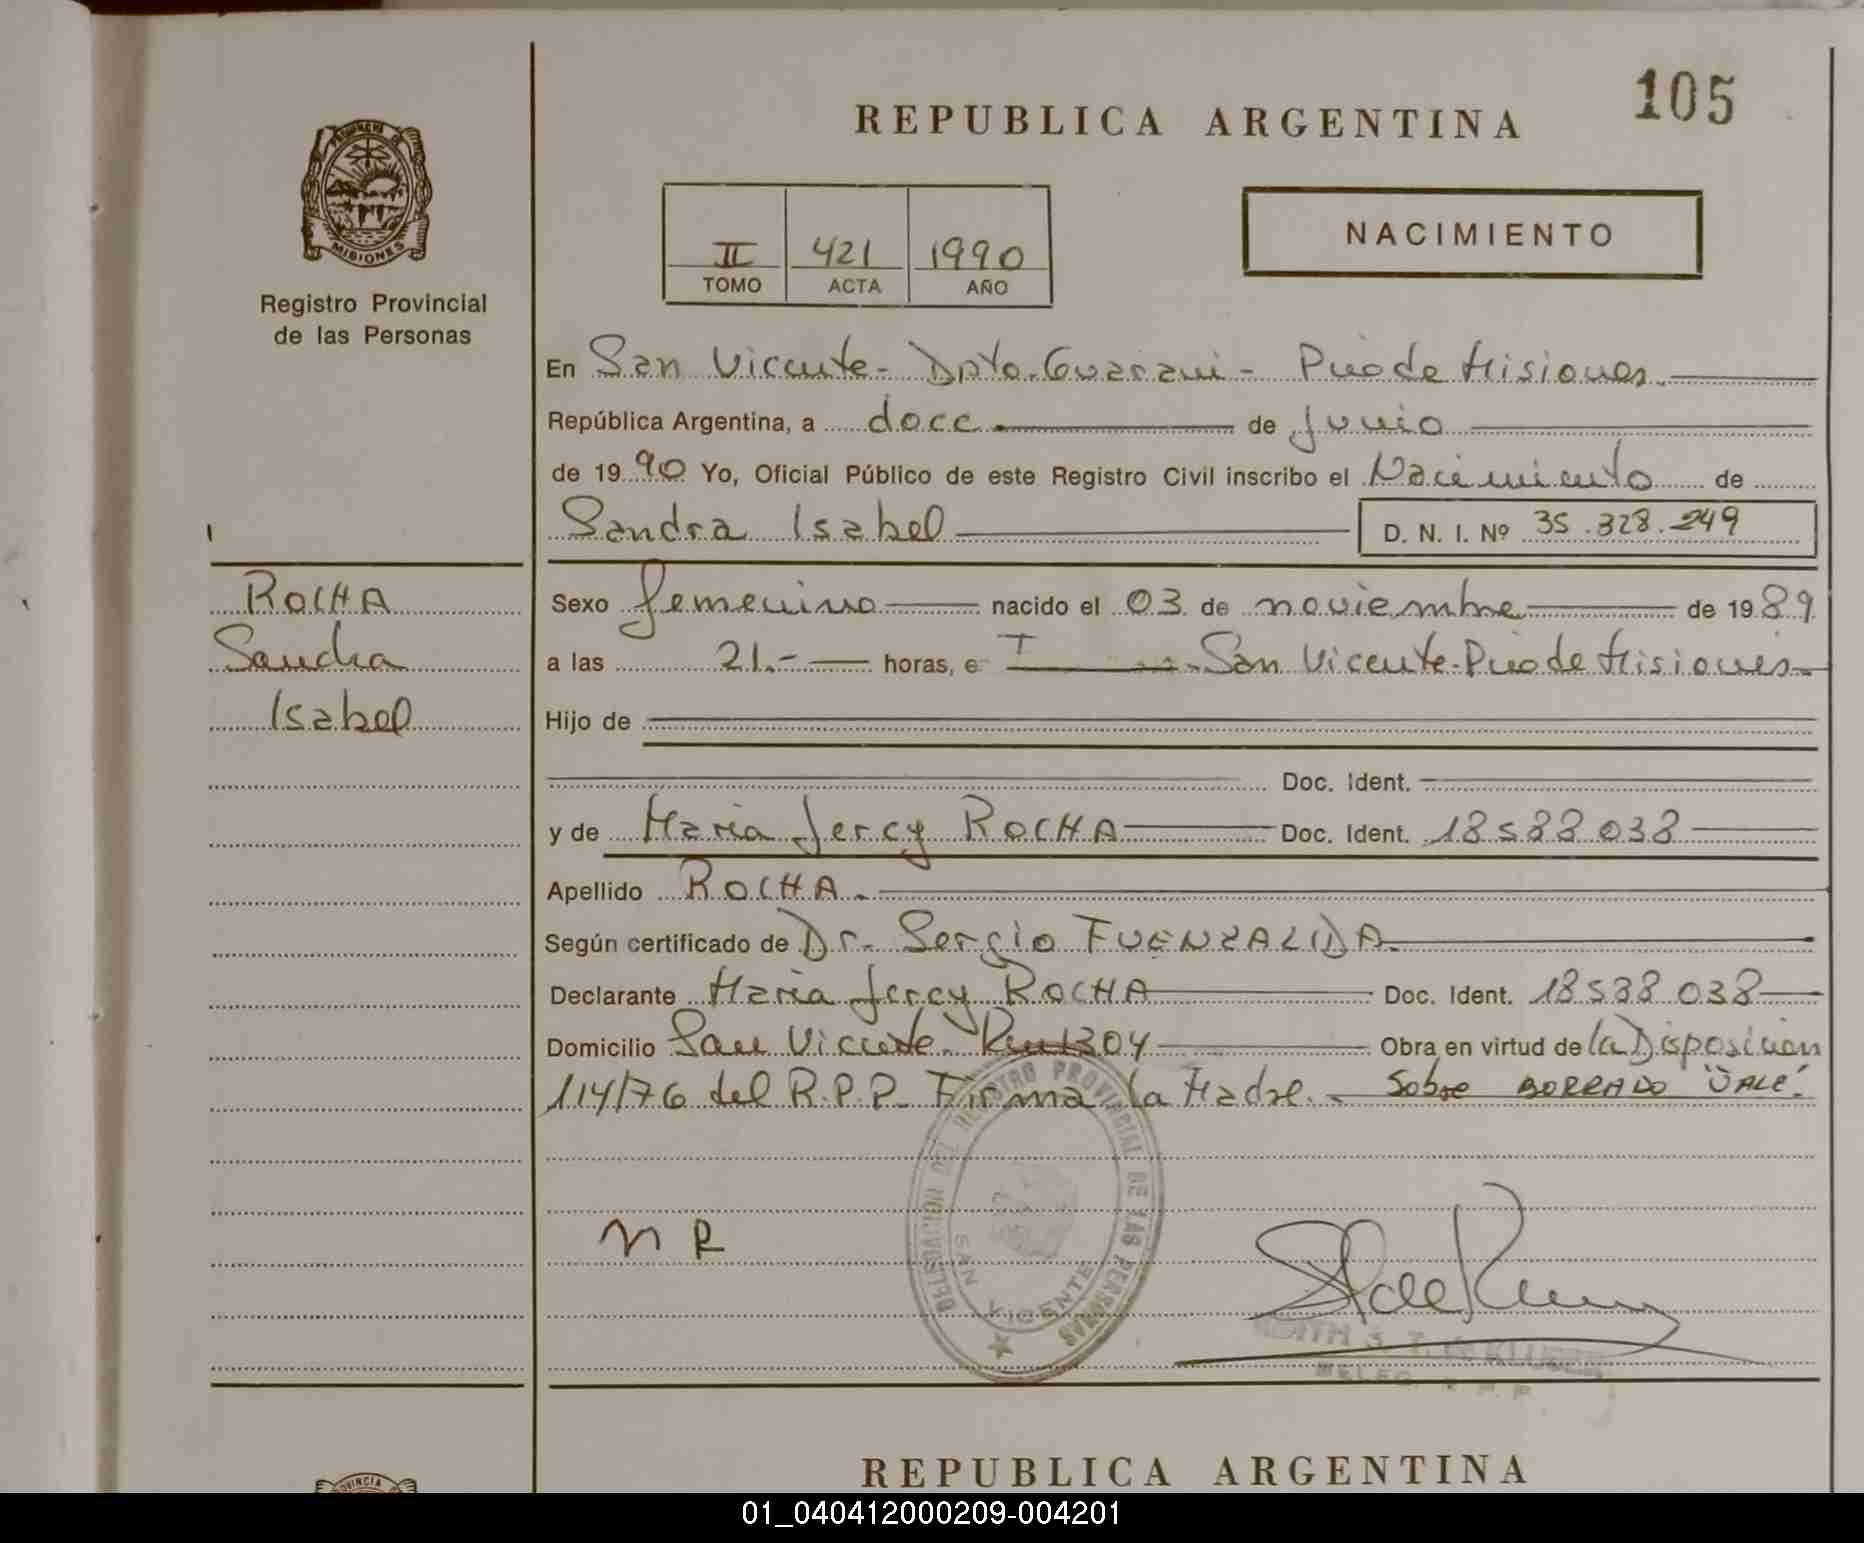 105
REPUBLICA ARGENTINA
PROVINCIA DE
MISIONES
Registro Provincial
de las Personas
II 421 1990
TOMO ACTA AÑO
NACIMIENTO
En San Vicente - Dpto. Guarani - Pciade Misiones.
República Argentina, a doce de Junio
de 1990 Yo, Oficial Público de este Registro Civil inscribo el Nacimiento de
Sandra Isabel D. N. I. Nº 35.328.249
ROCHA
Sandra
Isabel
Sexo femenino nacido el 03 de noviembre de 1989
a las 21.- horas, e San Vicente-Pciade Misiones
Hijo de
Doc. Ident.
y de Maria Jercy ROCHA Doc. Ident. 18588038
Apellido ROCHA.
Según certificado de Dr. Sergio FUENZALIDA.
Declarante Maria Jercy ROCHA Doc. Ident. 18588038
Domicilio San Vicente. Km1304 Obra en virtud de la Disposicion
114/76 del R.P.P. Firma la Madre. Sobre BORRADO "VALE".
DELEGACION DEL REGISTRO PROVINCIAL DE LAS PERSONAS
SAN VICENTE
M R
EDITH S. T. de
DELEG. R. P. P.
REPUBLICA ARGENTINA
PROVINCIA
01_040412000209-004201